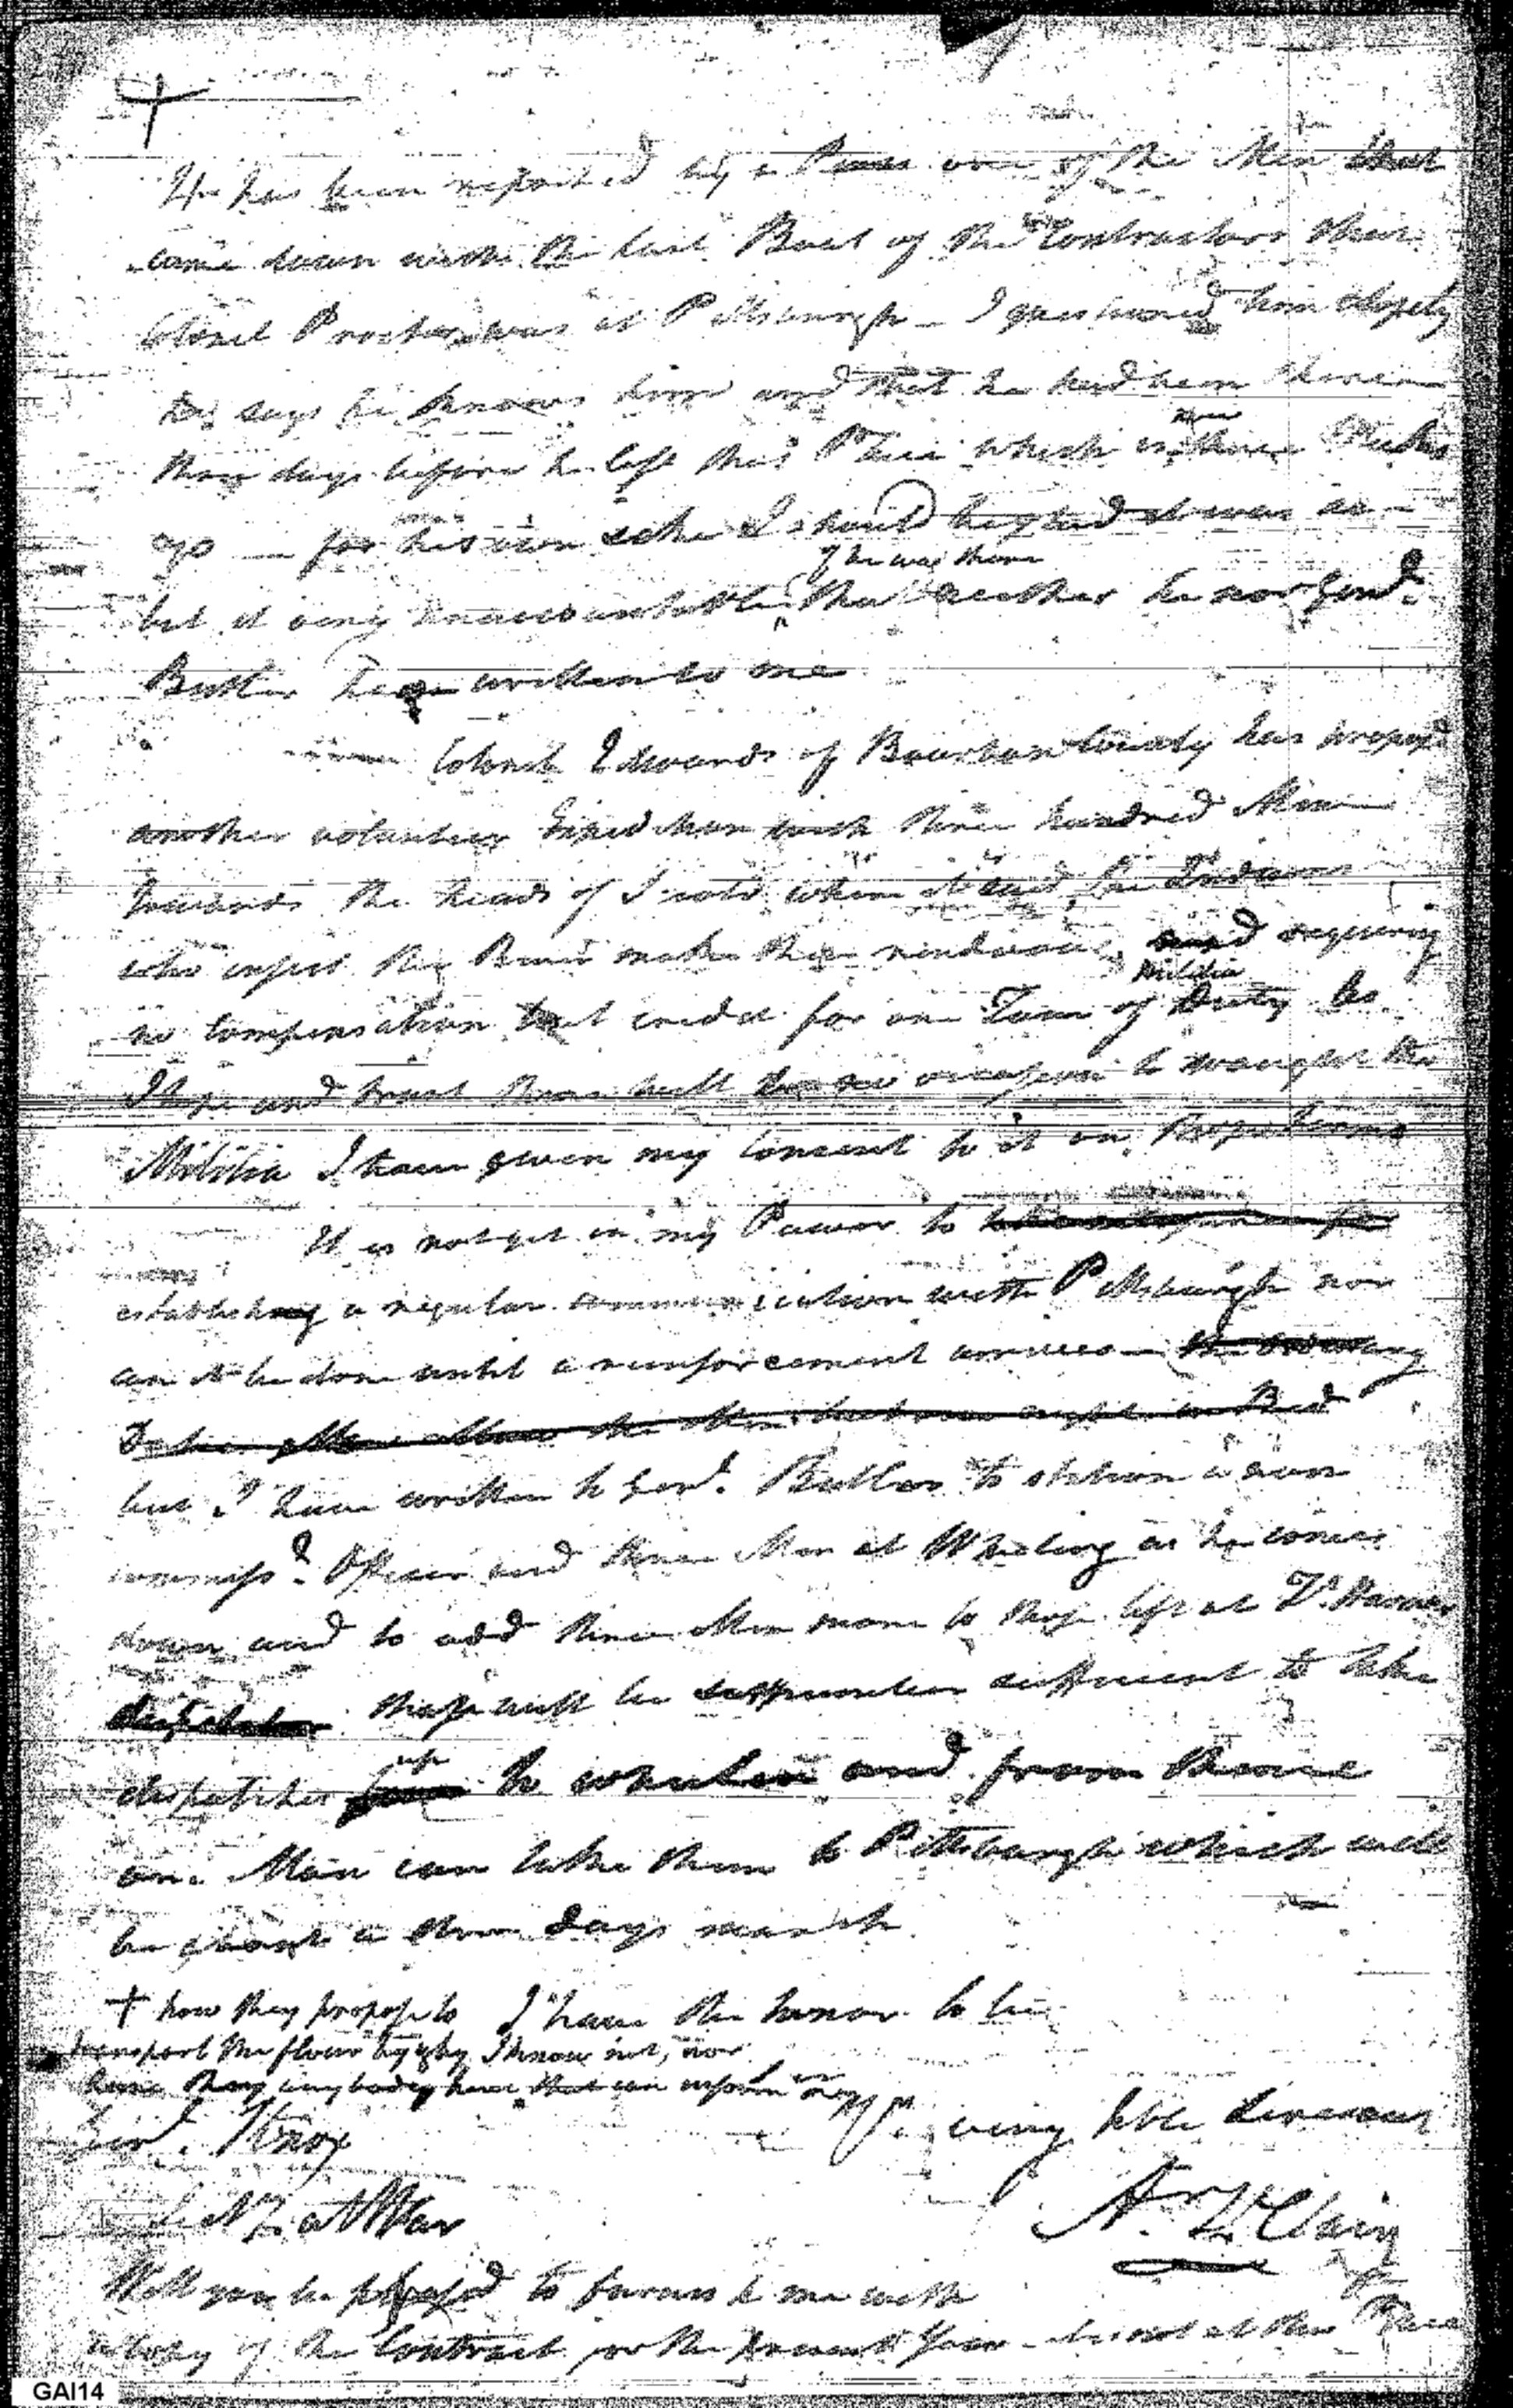 It has been reported by a one of the Men that
came down with the last Boat of the Contractors that
Colonel Proctor was at Pittsburgh — I questioned him closely
he says he knows him and that he had seen him
three days before he left that Place which is three Weeks
ago — for his own sake I should be glad it was so —
but it very unaccountable if he was there that neither he nor Genl.
Butler have written to me
Colonel Edwards of Bourbon County has proposd
another volunteer Expedition with three hundred Men
towards the heads of Scioto where it is said the Indians
who infest the River make their rendezvous, and requiring
no Compensation but credit for one Tour of Militia Duty As
I hope and trust there will be no occasion to the
Militia I have given my Consent to it on
It is not yet in my Power to
establishing a regular communication with Pittsburgh nor
can it be done until a reinforcement arrives —
but I have written to Genl. Butler to station a non
commissd. Officer and three Men at Wheeling as he comes
down and to add three Men more to those left at Ft. Harmar
these will be sufficient to take
dispatches up to Wheeling and from thence
one Man can take them to Pittsburgh which will
be about a three days march
+ how they propose to I have the honor to be
transport the flour &c I know not, nor
have they any body here that can inform me
Genl. Knox
Yr. very hble Servant
Secy. at War
Ar. St. Clair
Will you be pleased to furnish me with
a Copy of the Contract for the present Year — tis not at this Place
GAI14